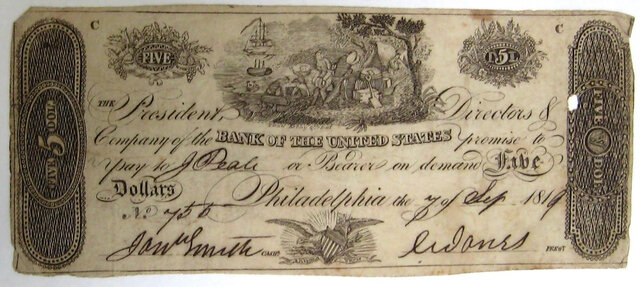 C C
FIVE L5L
THE President, Directors &
Company of the BANK OF THE UNITED STATES promise to
pay to J Peale or Bearer on demand Five
Dollars Philadelphia the 7 of Sep 1819
No. 755
Jon Smith CASHR. PRESDT.
5
FIVE V DOL